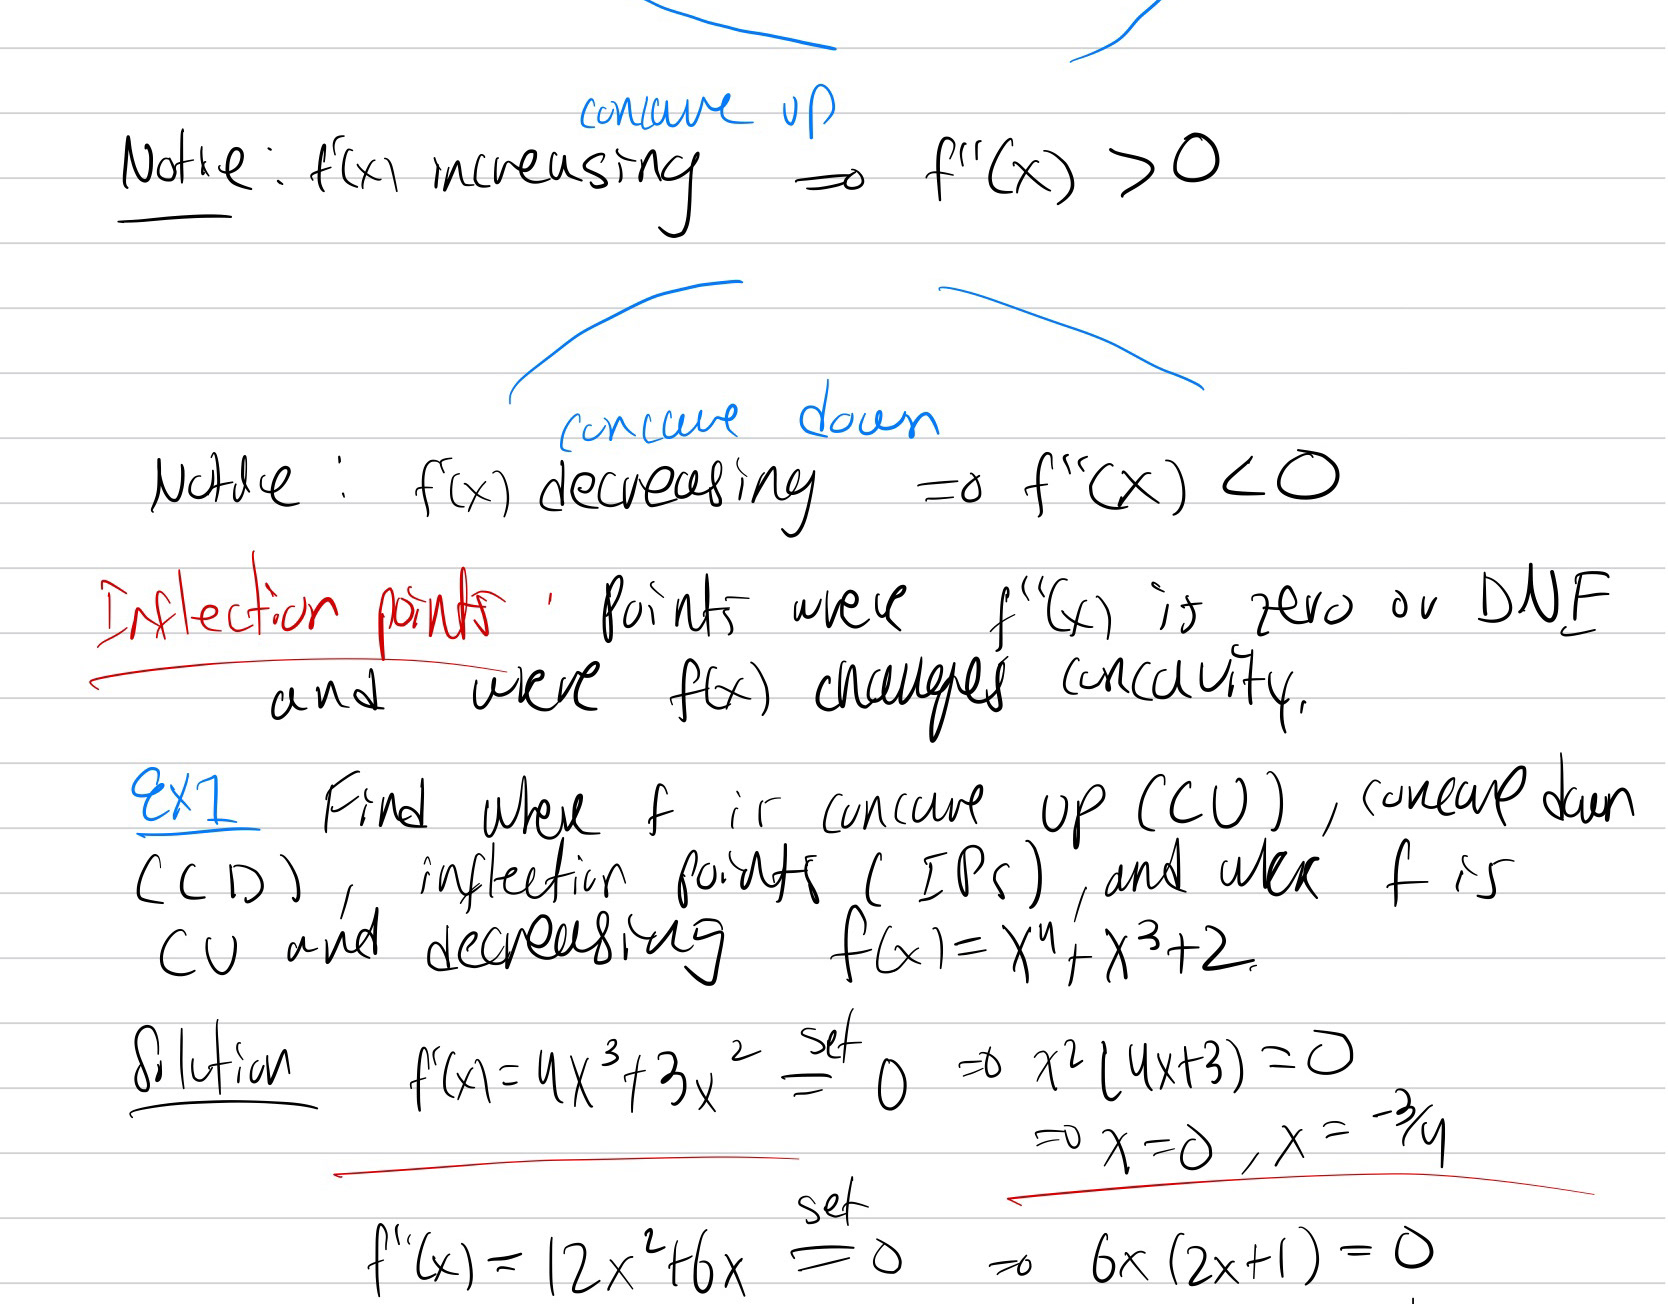 concave up
Notice: f'(x) increasing ⇒ f''(x) > 0
concave down
Notice: f'(x) decreasing ⇒ f''(x) < 0
Inflection points: Points were f''(x) is zero or DNE
and were f(x) changes concavity.
Ex1 Find where f is concave up (CU), concave down
(CD), inflection points (IPs), and where f is
CU and decreasing f(x) = x⁴ + x³ + 2.
Solution f'(x) = 4x³ + 3x² set = 0 ⇒ x²(4x+3) = 0
⇒ x = 0, x = -3/4
f''(x) = 12x² + 6x set = 0 ⇒ 6x(2x+1) = 0